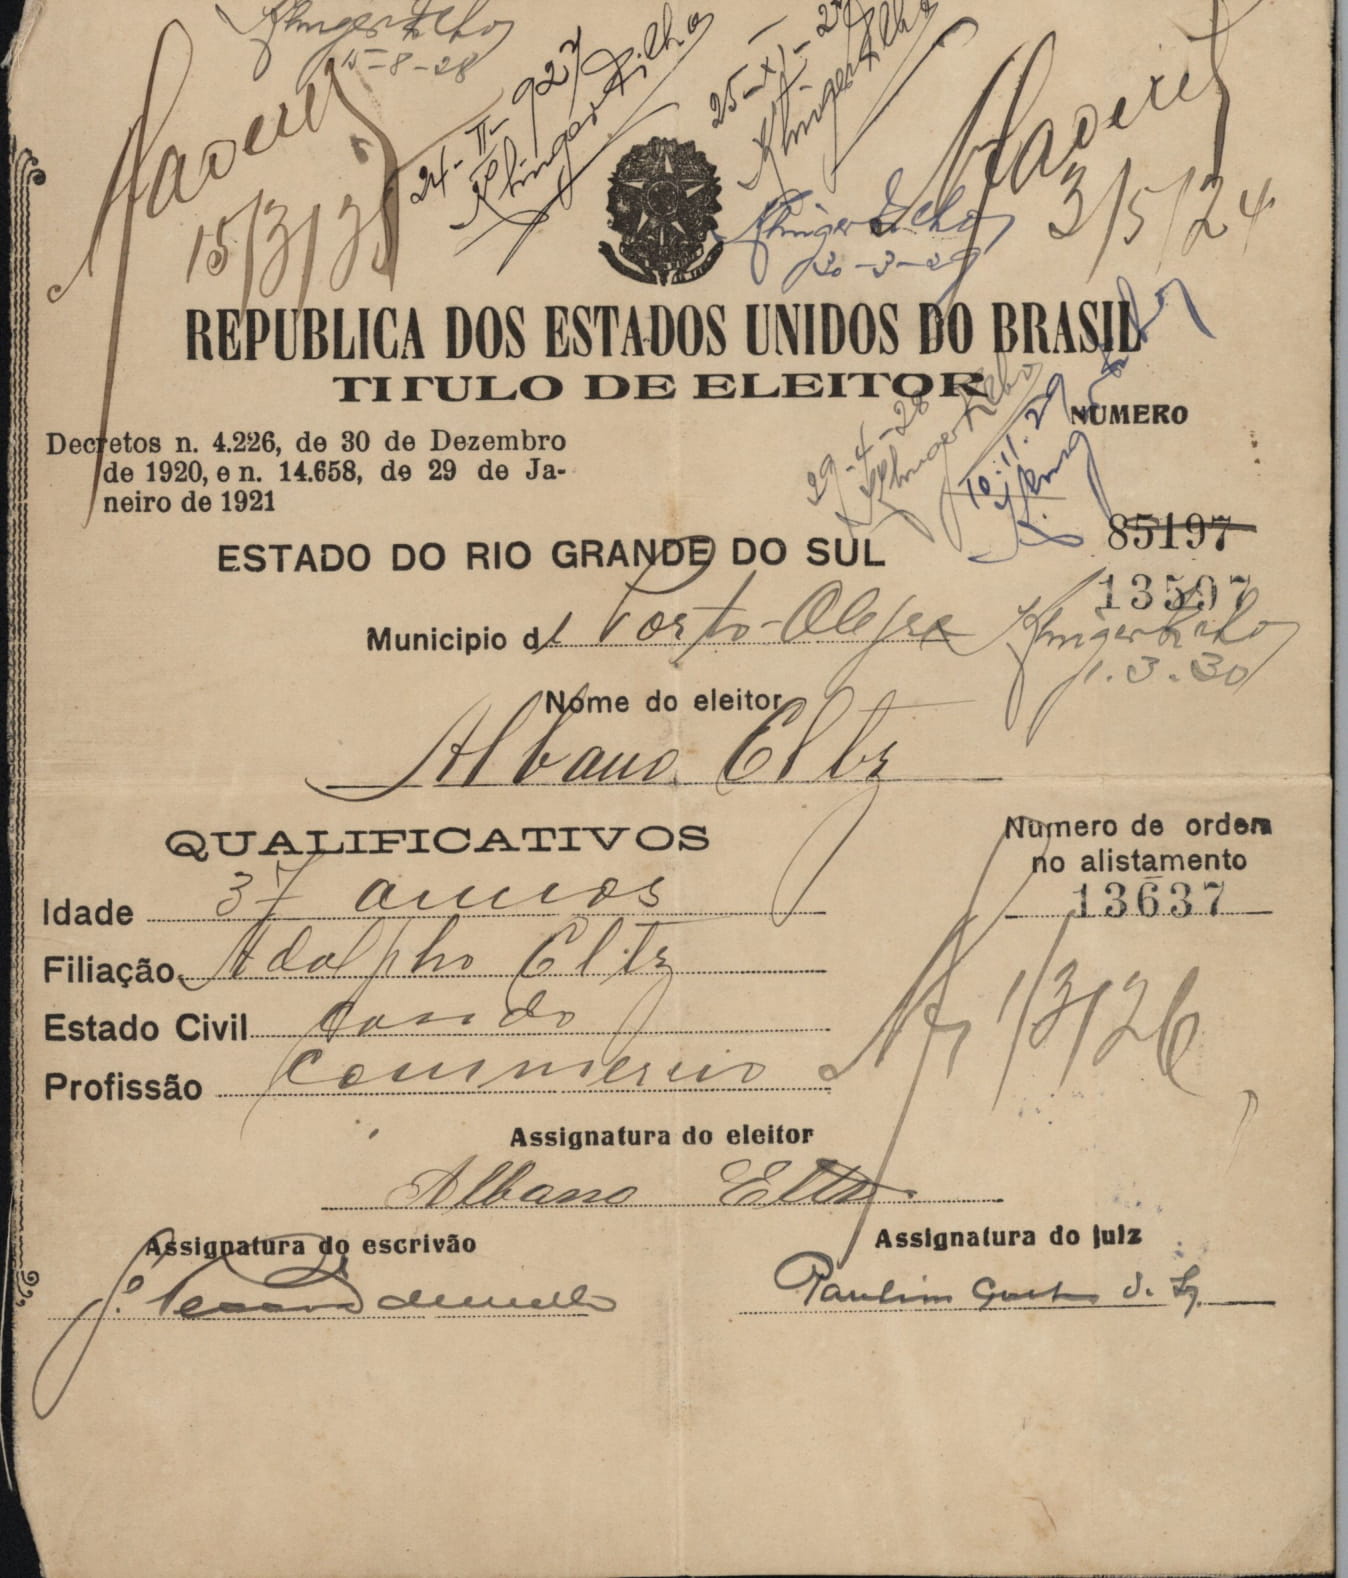 Klinger Filho
15-8-28
24-II-927
Klinger Filho
25-XI-27
Klinger Filho
15/3/35
3/5/24
Klinger Filho
30-3-29
REPUBLICA DOS ESTADOS UNIDOS DO BRASIL
TITULO DE ELEITOR
NUMERO
Decretos n. 4.226, de 30 de Dezembro
de 1920, e n. 14.658, de 29 de Ja-
neiro de 1921
29-4-28
Klinger Filho
10.11.29
85197
ESTADO DO RIO GRANDE DO SUL
13597
Municipio de Porto-Alegre
Klinger Filho
1.3.30
Nome do eleitor
Albano Eltz
QUALIFICATIVOS
Numero de ordem
no alistamento
13637
Idade 37 annos
Filiação Adolpho Eltz
Estado Civil casado
1/3/26
Profissão Commercio
Assignatura do eleitor
Albano Eltz
Assignatura do escrivão
Assignatura do juiz